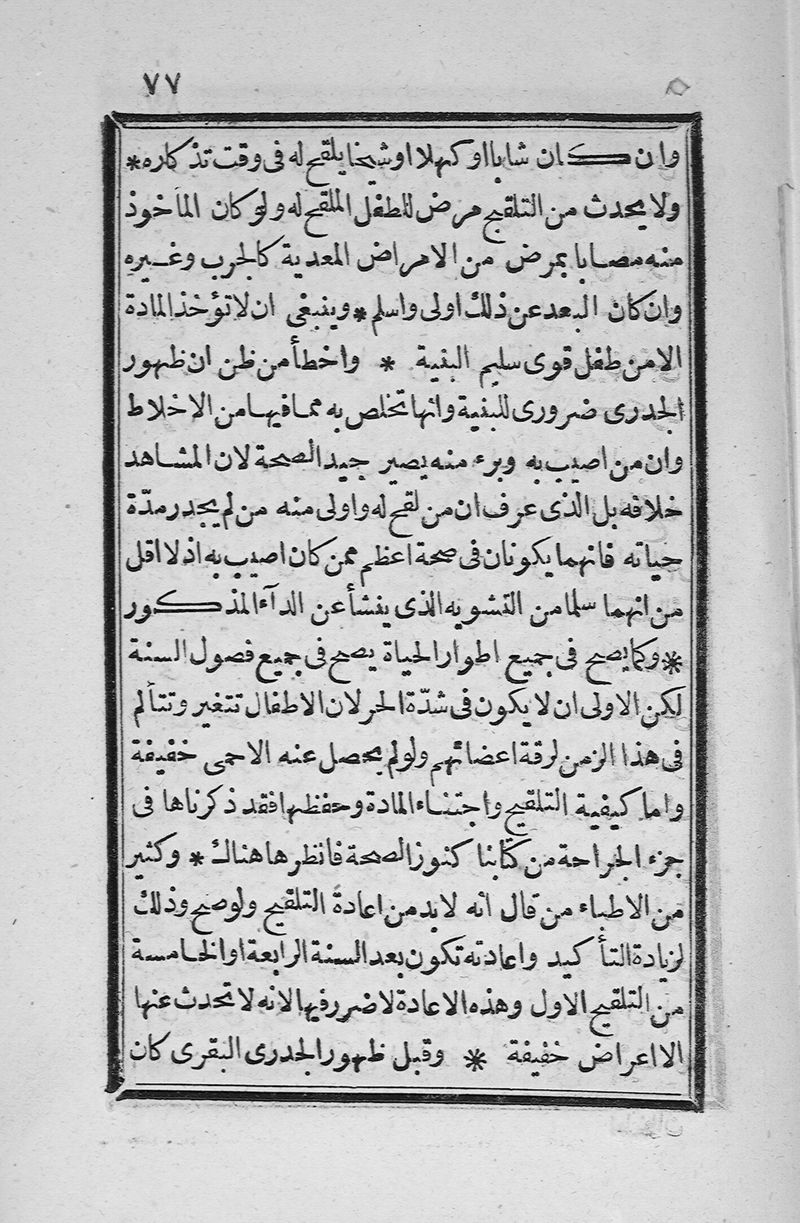 ٧٧
وان كان شابا او كهلا او شيخا يلقح له فى وقت تذكاره *
ولا يحدث من التلقيح مرض للطفل الملقح له ولو كان المأخوذ
منه مصابا بمرض من الامراض المعدية كالجرب وغيره
وان كان البعد عن ذلك اولى واسلم * وينبغى ان لا تؤخذ المادة
الا من طفل قوى سليم البنية * واخطأ من ظن ان ظهور
الجدرى ضرورى للبنية وانها تخلص به مما فيها من الاخلاط
وان من اصيب به وبرء منه يصير جيد الصحة لان المشاهد
خلافه بل الذى عرف ان من لقح له واولى منه من لم يجدر مدّة
حياته فانهما يكونان فى صحة اعظم ممن كان اصيب به اذ لا اقل
من انهما سلما من التشويه الذى ينشأ عن الدآء المذكور
* وكما يصح فى جميع اطوار الحياة يصح فى جميع فصول السنة
لكن الاولى ان لا يكون فى شدّة الحر لان الاطفال تتغير وتتألم
فى هذا الزمن لرقة اعضائهم ولو لم يحصل عنه الا حمى خفيفة
واما كيفية التلقيح واجتناء المادة وحفظها فقد ذكرناها فى
جزء الجراحة من كتابنا كنوز الصحة فانظرها هناك * وكثير
من الاطباء من قال انه لابد من اعادة التلقيح ولو صح وذلك
لزيادة التأكيد واعادته تكون بعد السنة الرابعة او الخامسة
من التلقيح الاول وهذه الاعادة لا ضرر فيها لانه لا تحدث عنها
الا اعراض خفيفة * وقبل ظهور الجدرى البقرى كان